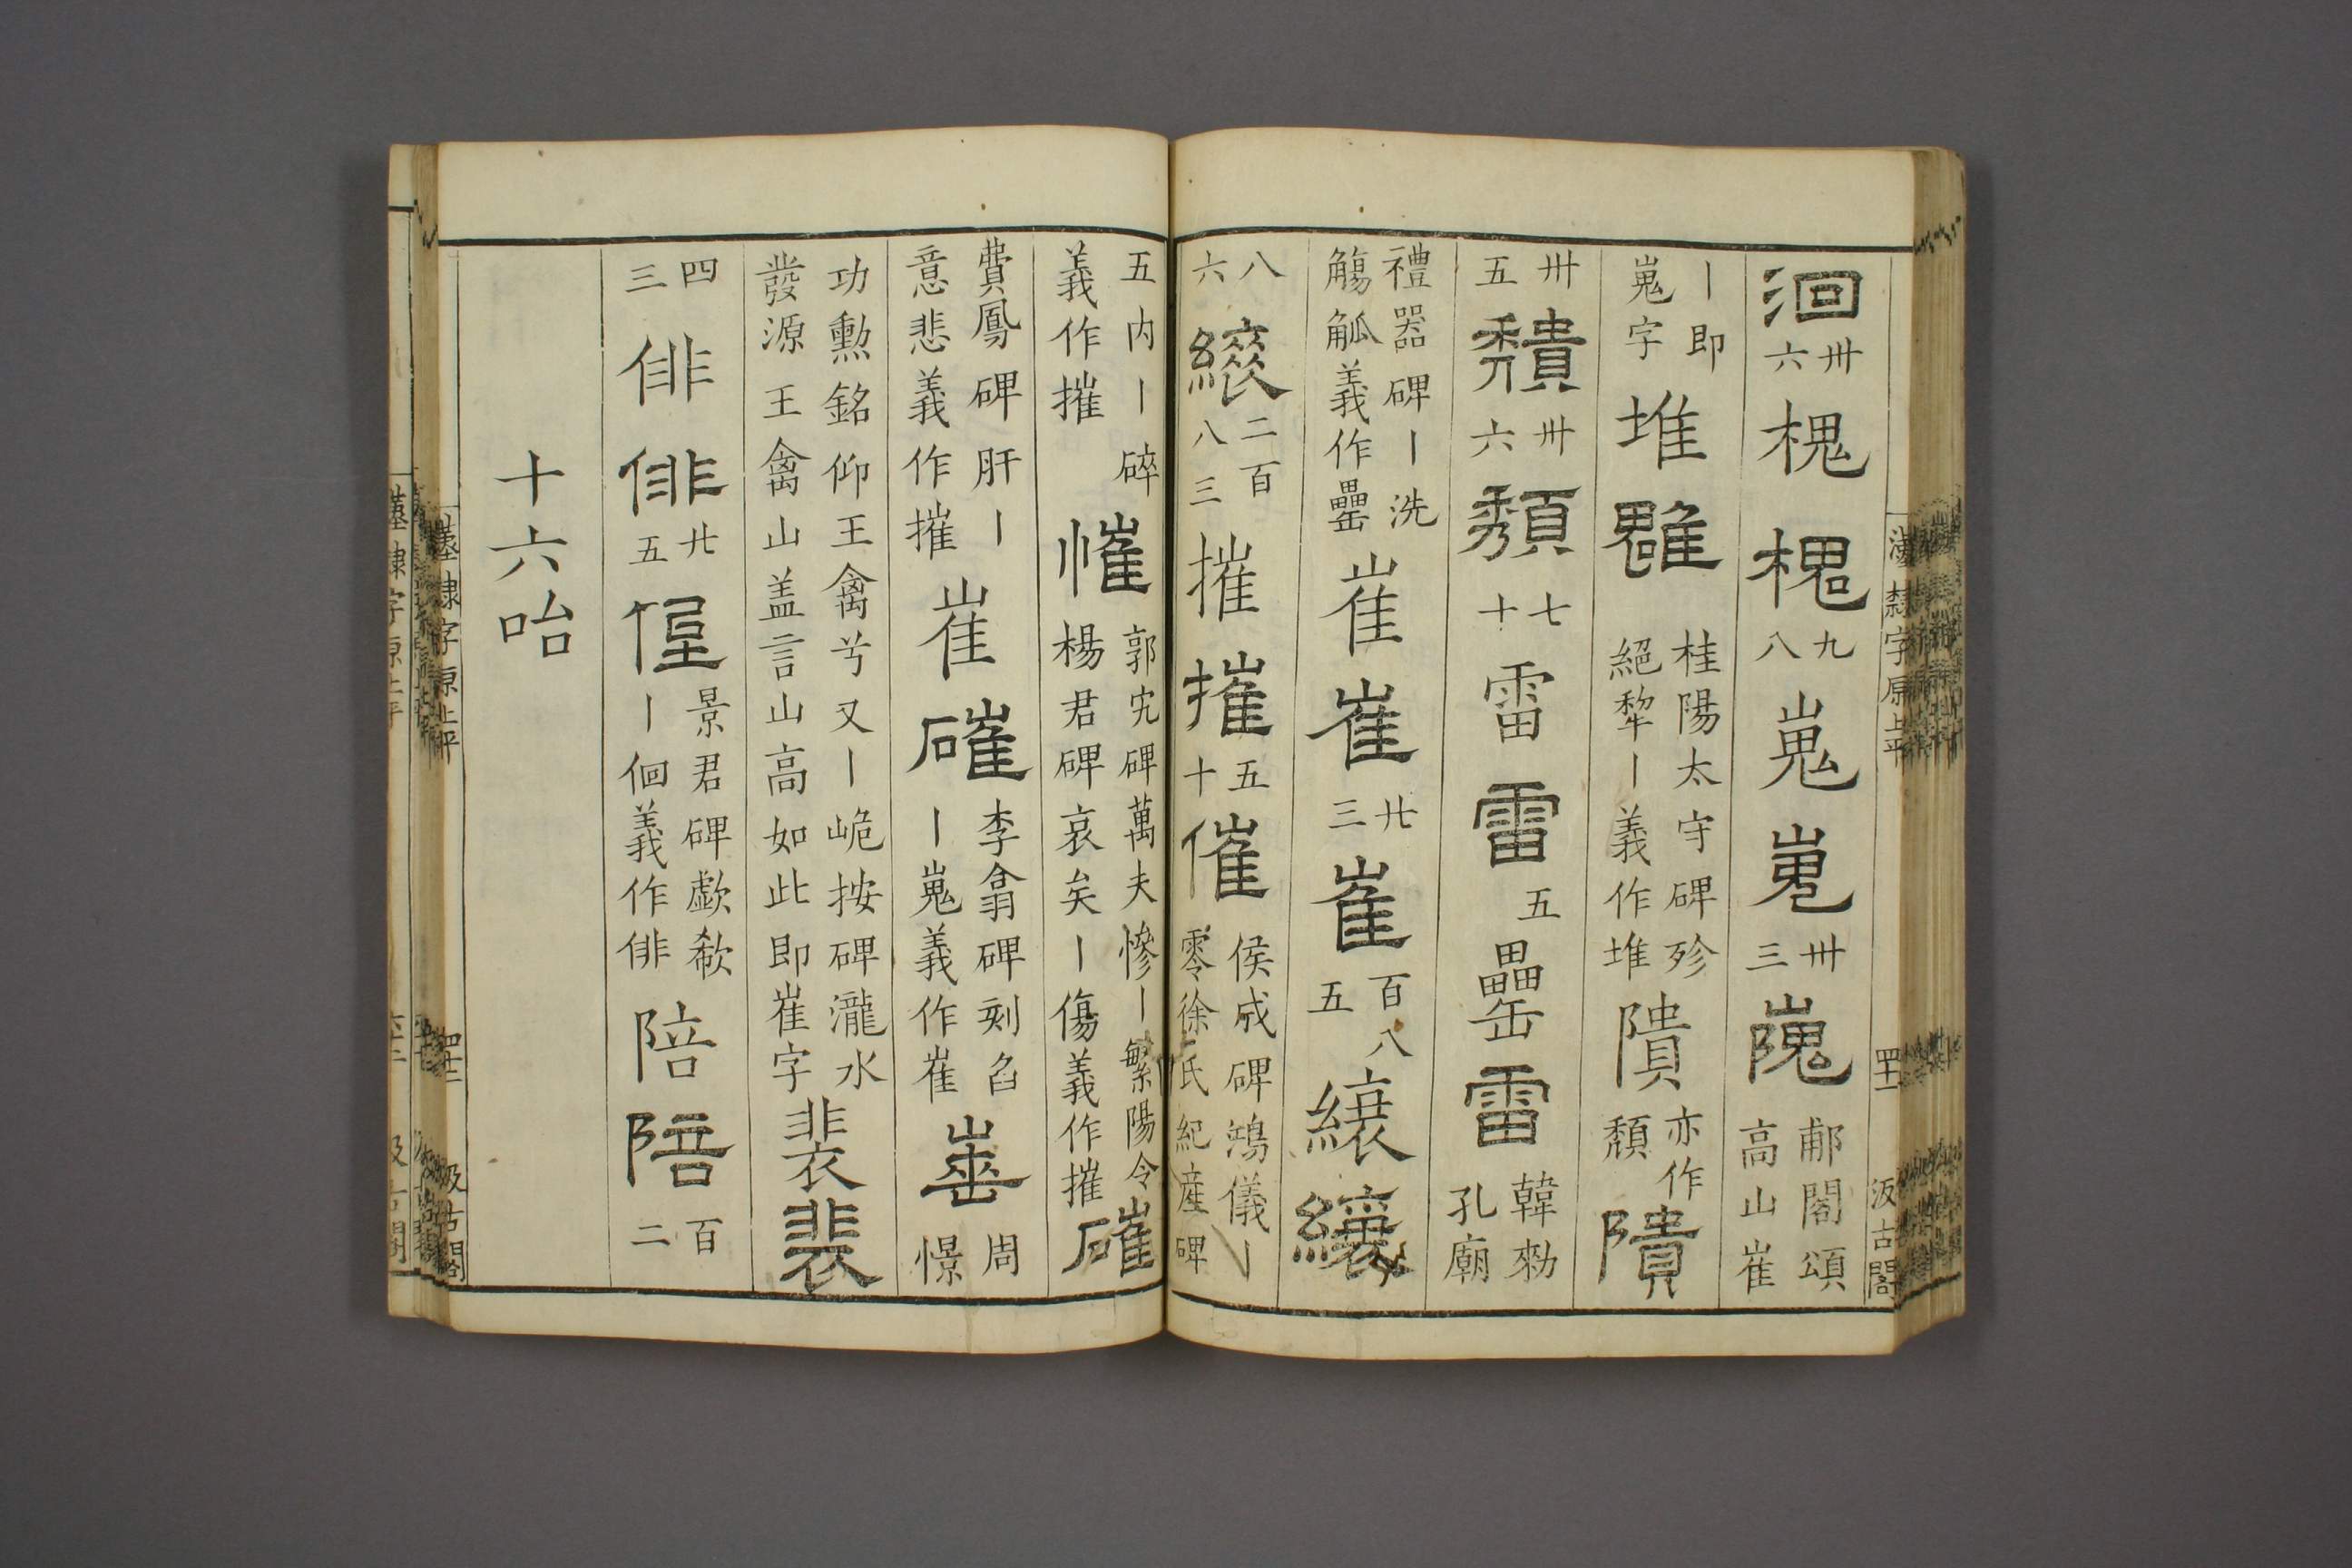 洄 卅六 槐 槐 九八 嵬 嵬 卅三 隗 郙閣頌高山崔
丨即嵬字 堆 桂陽太守碑殄絕犂丨義作堆 隤 亦作頹 隤
卅五 穨 卅六 頹 七十 雷 雷 五 罍 雷 韓勑孔廟
禮器碑丨洗觴觚義作罍 崔 崔 廿三 崔 百八五 縗 縗
八六 縗 二百八三 摧 摧 五十 催 侯成碑鴻儀丨零徐氏紀產碑
五內丨碎義作摧 慛 郭究碑萬夫慘丨繁陽令楊君碑哀矣丨傷義作摧 磪
費鳳碑肝丨意悲義作摧 崔 磪 李翕碑刻舀丨嵬義作崔 周憬
功勲銘仰王禽兮又丨峗按碑瀧水發源王禽山盖言山高如此即崔字 裴 裴
四三 俳 俳 廿五 景君碑歔欷丨佪義作俳 陪 陪 百二
十六咍
漢隸字原上平 四十一 汲古閣
漢隸字原上平 四十二 汲古閣